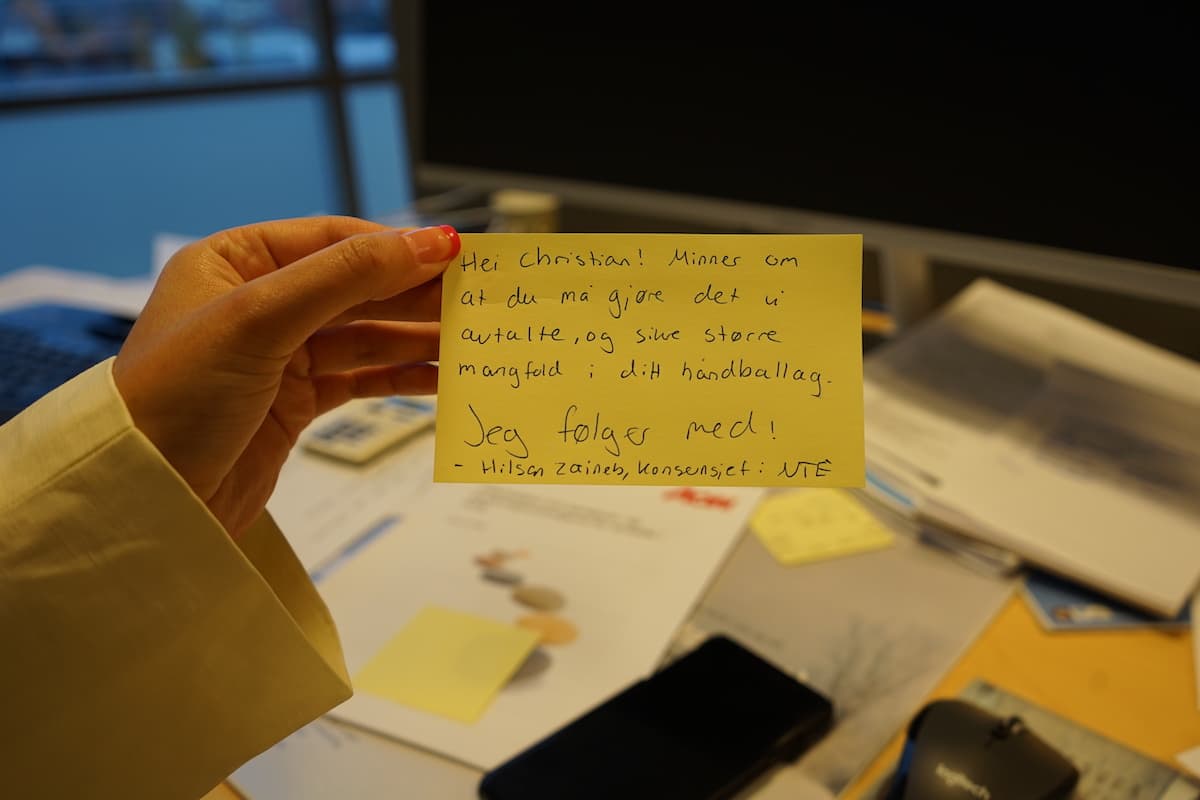 Hei Christian! Minner om
at du må gjøre det vi
avtalte, og sikre større
mangfold i ditt håndballag.
Jeg følger med!
- Hilsen Zaineb, konsernsjef i NTE
logitech